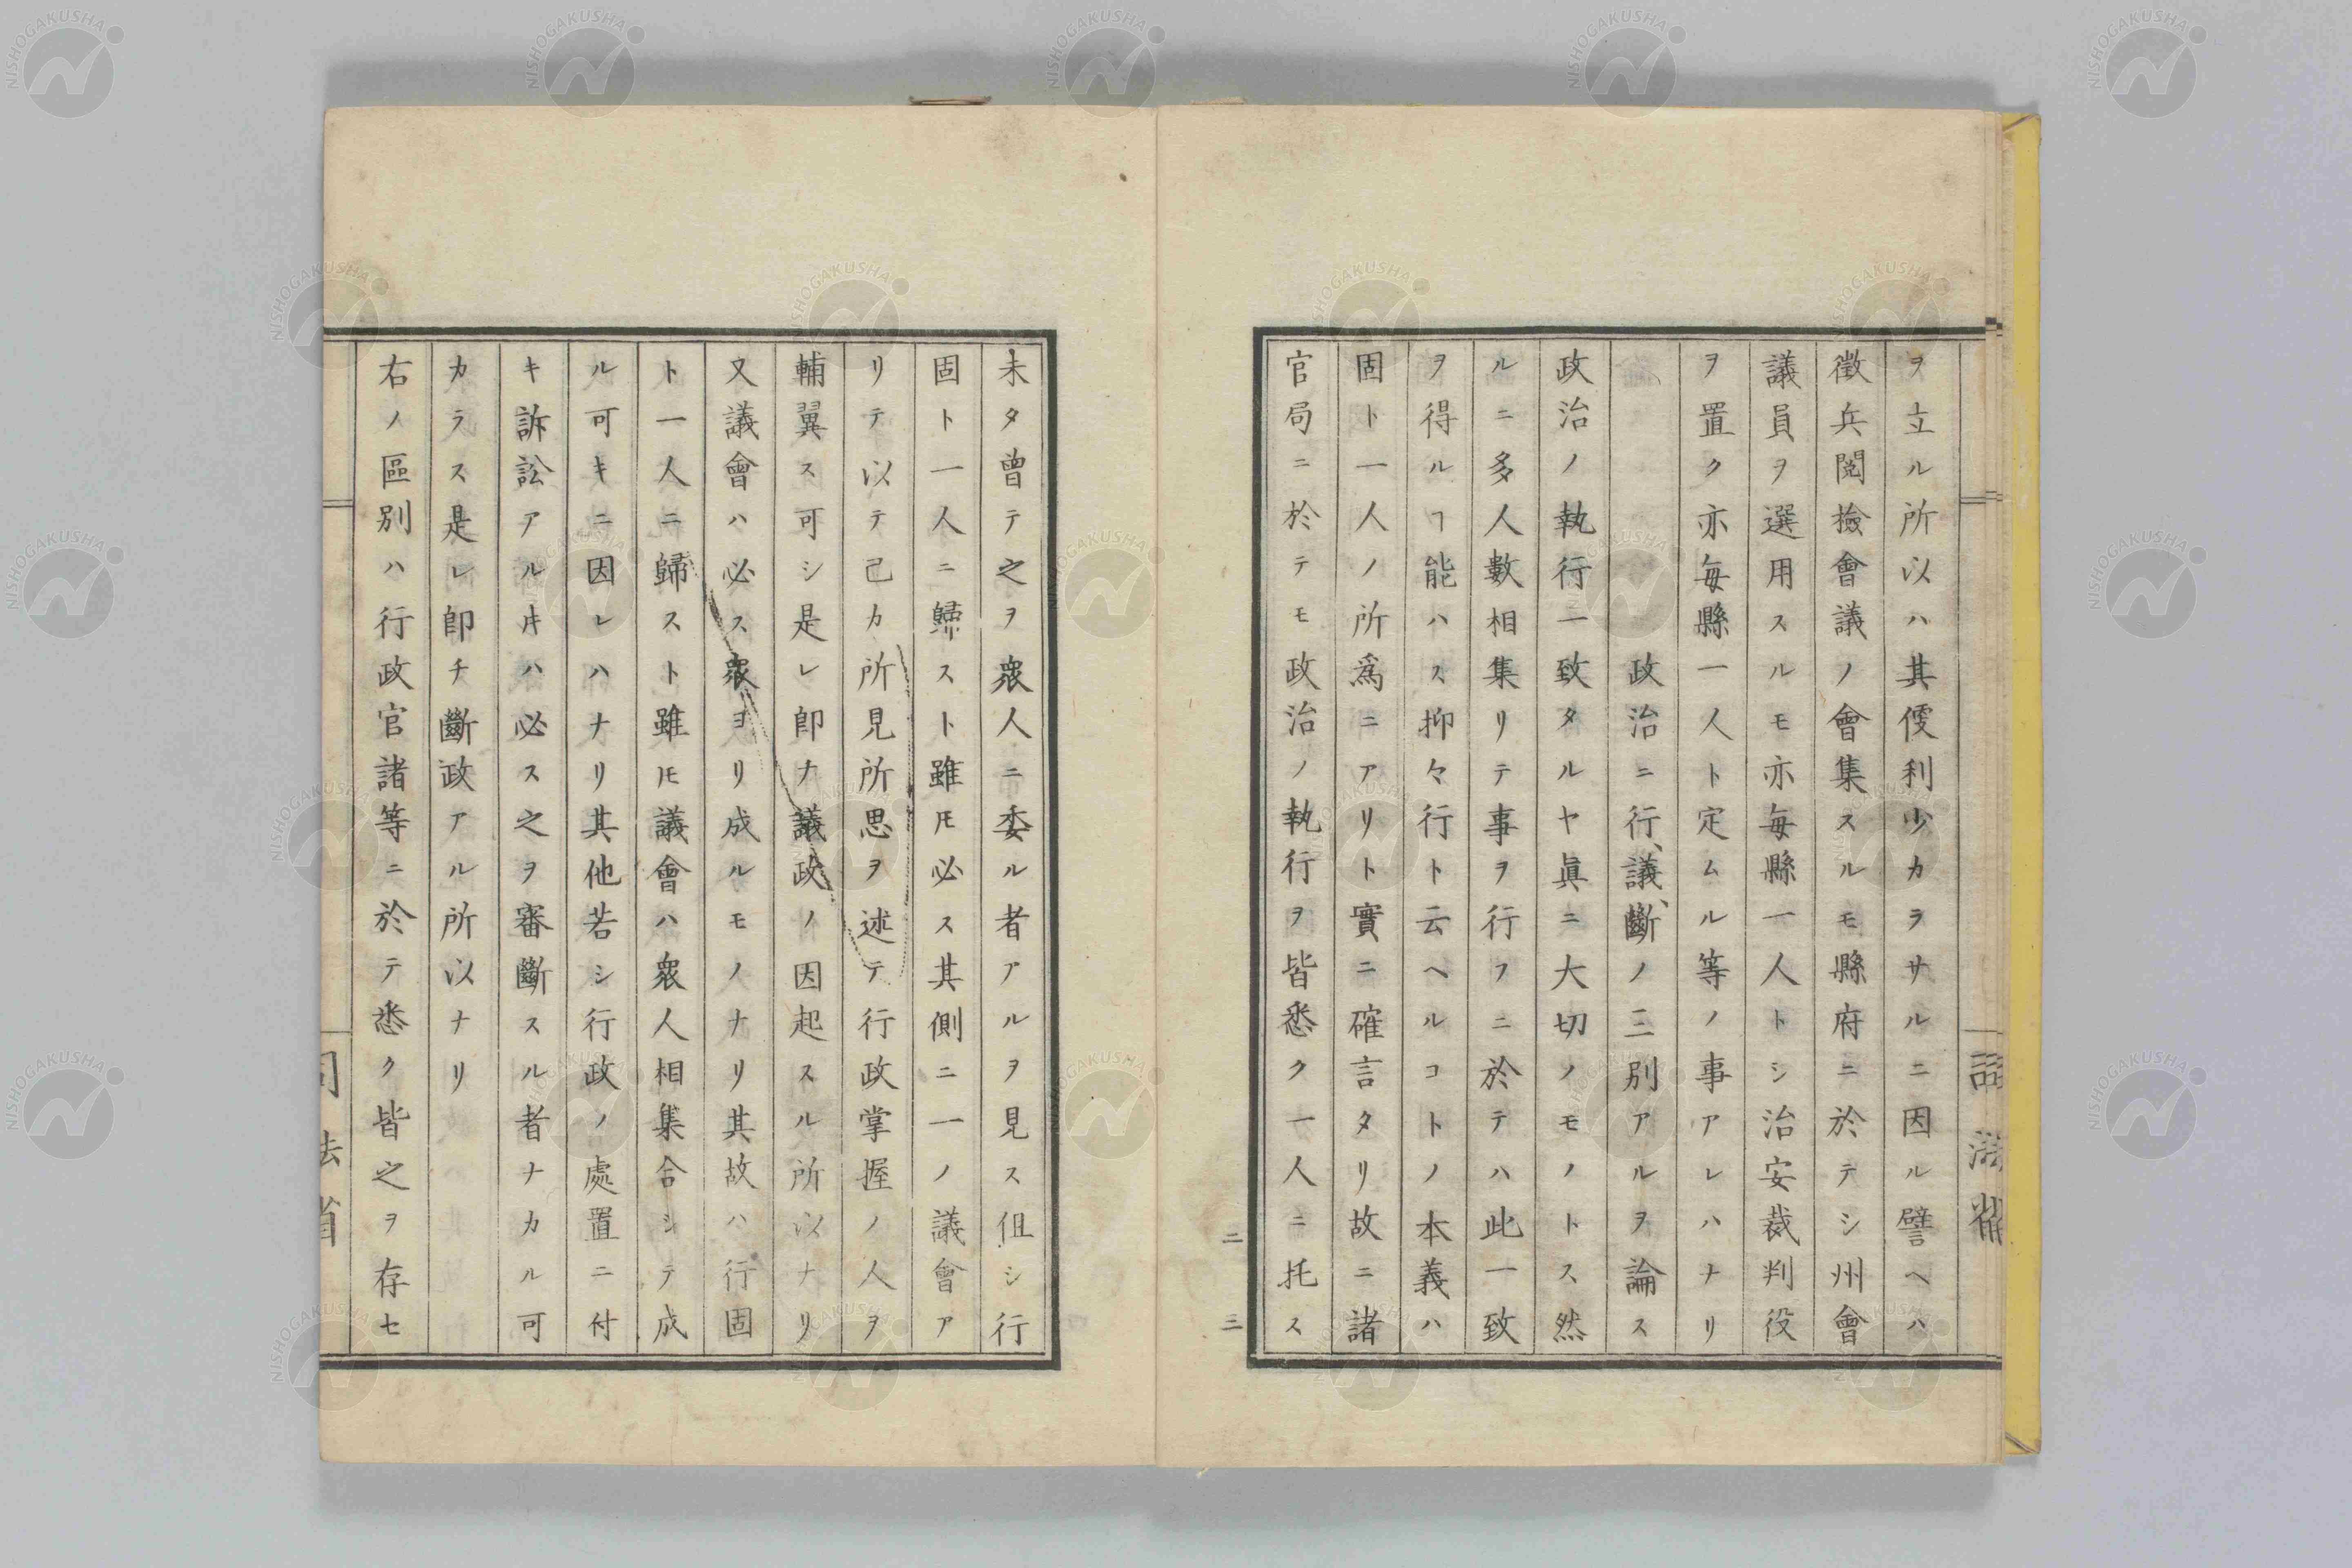 ヲ立ル所以ハ其便利少カラサルニ因ル譬ヘハ
徴兵閲撿會議ノ會集スルモ縣府ニ於テシ州會
議員ヲ選用スルモ亦毎縣一人トシ治安裁判役
ヲ置ク亦毎縣一人ト定ムル等ノ事アレハナリ
政治ニ行、議、斷ノ三別アルヲ論ス
政治ノ執行一致タルヤ眞ニ大切ノモノトス然
ルニ多人數相集リテ事ヲ行フニ於テハ此一致
ヲ得ルヿ能ハス抑々行ト云ヘルコトノ本義ハ
固ト一人ノ所爲ニアリト實ニ確言タリ故ニ諸
官局ニ於テモ政治ノ執行ヲ皆悉ク一人ニ托ス
二
三
未タ曾テ之ヲ衆人ニ委ル者アルヲ見ス伹シ行
固ト一人ニ歸スト雖𪜈必ス其側ニ一ノ議會ア
リテ以テ己カ所見所思ヲ述テ行政掌握ノ人ヲ
輔翼ス可シ是レ卽ナ議政ノ因起スル所以ナリ
又議會ハ必ス衆ヨリ成ルモノナリ其故ハ行固
ト一人ニ歸スト雖𪜈議會ハ衆人相集合シテ成
ル可キニ因レハナリ其他若シ行政ノ處置ニ付
キ訴訟アル𪜈ハ必ス之ヲ審斷スル者ナカル可
カラス是レ卽チ斷政アル所以ナリ
右ノ區別ハ行政官諸等ニ於テ悉ク皆之ヲ存セ
司法省